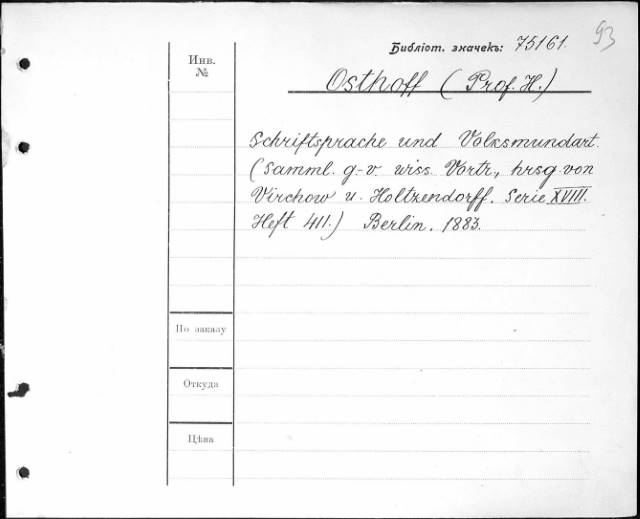 93
Библіот. значекъ: 75161.
Инв.
№
Osthoff (Prof. H.)
Schriftsprache und Volksmundart.
(Samml. g.-v. wiss. Vortr., hrsg. von
Virchow u. Holtzendorff. Serie XVIII.
Heft 411.) Berlin. 1883.
По заказу
Откуда
Цѣна